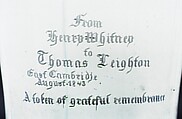 From
Henry Whitney
to
Thomas Leighton
East Cambridge
August 1843
A token of grateful remembrance